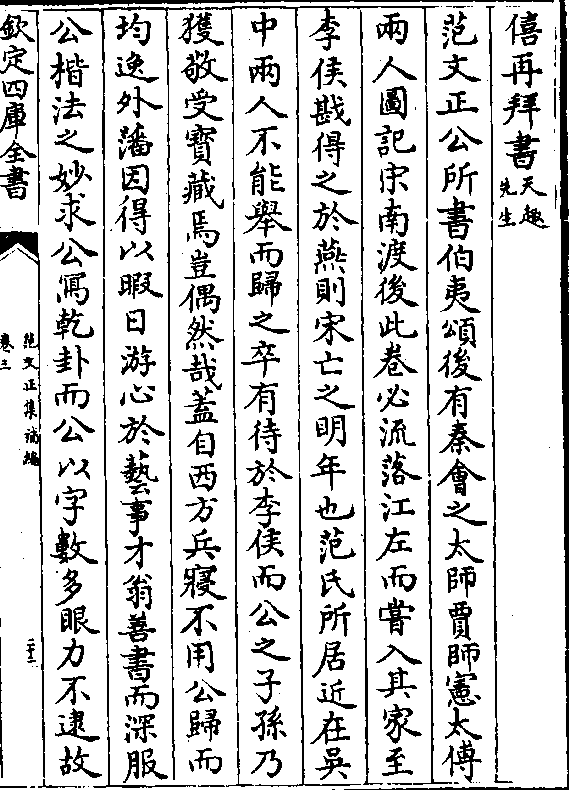 僖再拜書天趣先生
范文正公所書伯夷頌後有秦會之太師賈師憲太傅
兩人圖記宋南渡後此卷必流落江左而嘗入其家至
李侯戡得之於燕則宋亡之明年也范氏所居近在吳
中兩人不能舉而歸之卒有待於李侯而公之子孫乃
獲敬受寳藏焉豈偶然哉蓋自西方兵寢不用公歸而
均逸外藩因得以暇日游心於藝事才翁善書而深服
公楷法之妙求公寫乾卦而公以字數多眼力不逮故
欽定四庫全書
范文正集補編
卷三
二十二